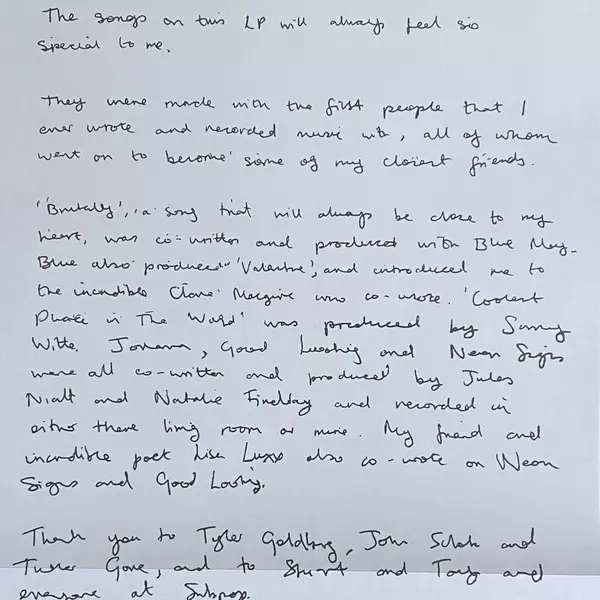 The songs on this LP will always feel so
special to me.
They were made with the first people that I
ever wrote and recorded music with, all of whom
went on to become some of my closest friends.
'Brutally', a song that will always be close to my
heart, was co-written and produced with Blue May.
Blue also produced 'Valentine', and introduced me to
the incredible Clare Maguire who co-wrote. 'Coolest
Place in The World' was produced by Sammy
Witte. Johanna, Good Looking and Neon Signs
were all co-written and produced by Jules
and Natalie Findlay and recorded in
either there living room or mine. My friend and
incredible poet Lisa Luxx also co-wrote on Neon
Signs and Good Looking.
Thank you to Tyler Goldberg, John and
Tucker Gore, and to Stuart and Tony and
everyone at Subpop.